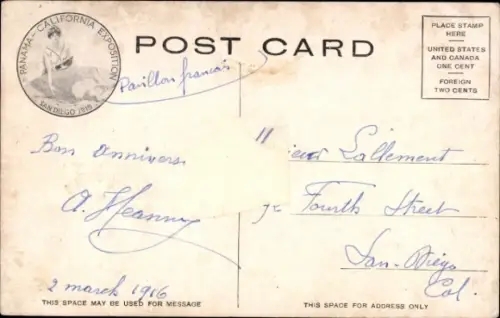 PANAMA-CALIFORNIA EXPOSITION
SAN DIEGO 1915
POST CARD
PLACE STAMP
HERE
UNITED STATES
AND CANADA
ONE CENT
FOREIGN
TWO CENTS
Pavillon français
Bon annivers
2 march 1916
THIS SPACE MAY BE USED FOR MESSAGE
Lallement
Fourth Street
San-Diego
Cal.
THIS SPACE FOR ADDRESS ONLY